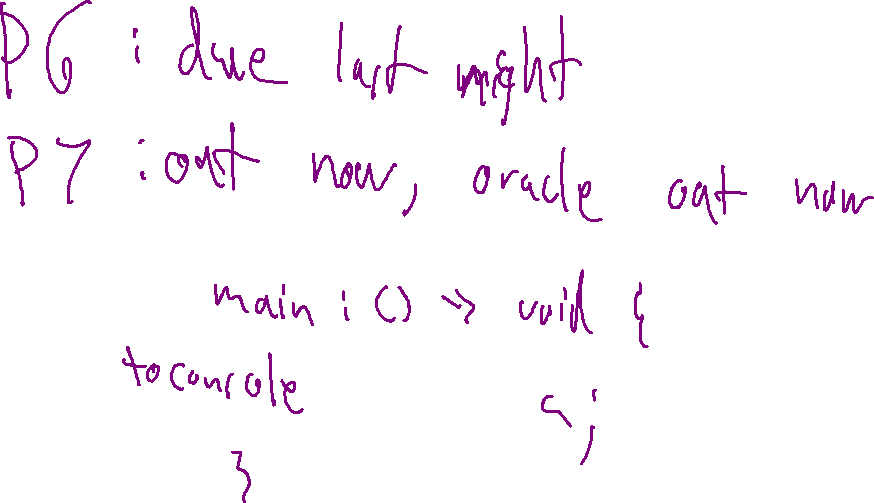 P6 : due last night
P7 : out now, oracle out now
main : () -> void {
toconsole a;
}